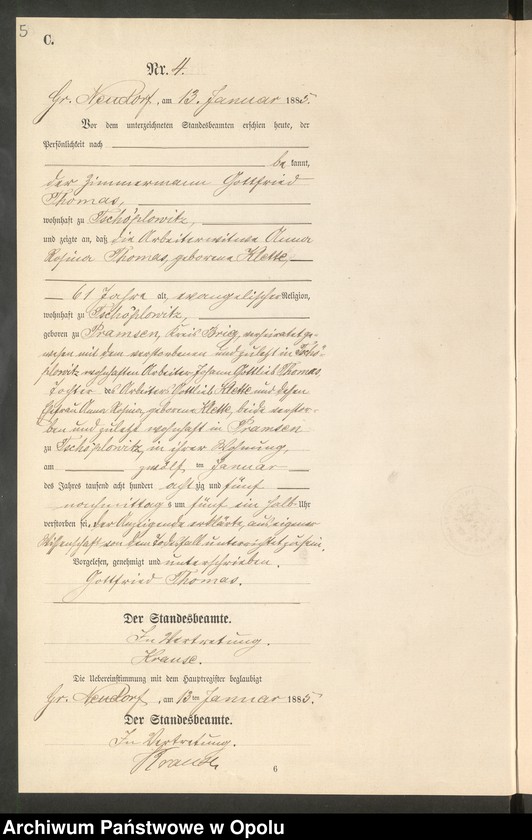 5
C.
Nr. 4.
Gr. Neudorf, am 13. Januar 1885.
Vor dem unterzeichneten Standesbeamten erschien heute, der
Persönlichkeit nach
bekannt,
der Zimmermann Gottfried
Thomas,
wohnhaft zu Tschöplowitz,
und zeigte an, daß die Arbeiterwitwe Anna
Rosina Thomas, geborene Klette,
61 Jahre alt, evangelischer Religion,
wohnhaft zu Tschöplowitz,
geboren zu Pramsen, Kreis Brieg, verheiratet ge-
wesen mit dem verstorbenen und zuletzt in Tschö-
plowitz wohnhaften Arbeiter Johann Gottlieb Thomas,
Tochter des Arbeiters Gottlieb Klette und dessen
Ehefrau Anna Rosina, geborene Klette, beide verstor-
ben und zuletzt wohnhaft in Pramsen
zu Tschöplowitz in ihrer Wohnung,
am zwölf ten Januar
des Jahres tausend acht hundert achtzig und fünf
nachmittags um fünf ein halb Uhr
verstorben sei. Der Anzeigende erklärte, aus eigener
Wissenschaft von dem Todesfall unterrichtet zu sein.
Vorgelesen, genehmigt und unterschrieben.
Gottfried Thomas.
Der Standesbeamte.
In Vertretung.
Krause.
Die Uebereinstimmung mit dem Hauptregister beglaubigt
Gr. Neudorf, am 13ten Januar 1885.
Der Standesbeamte.
In Vertretung.
Krause.
6
Archiwum Państwowe w Opolu